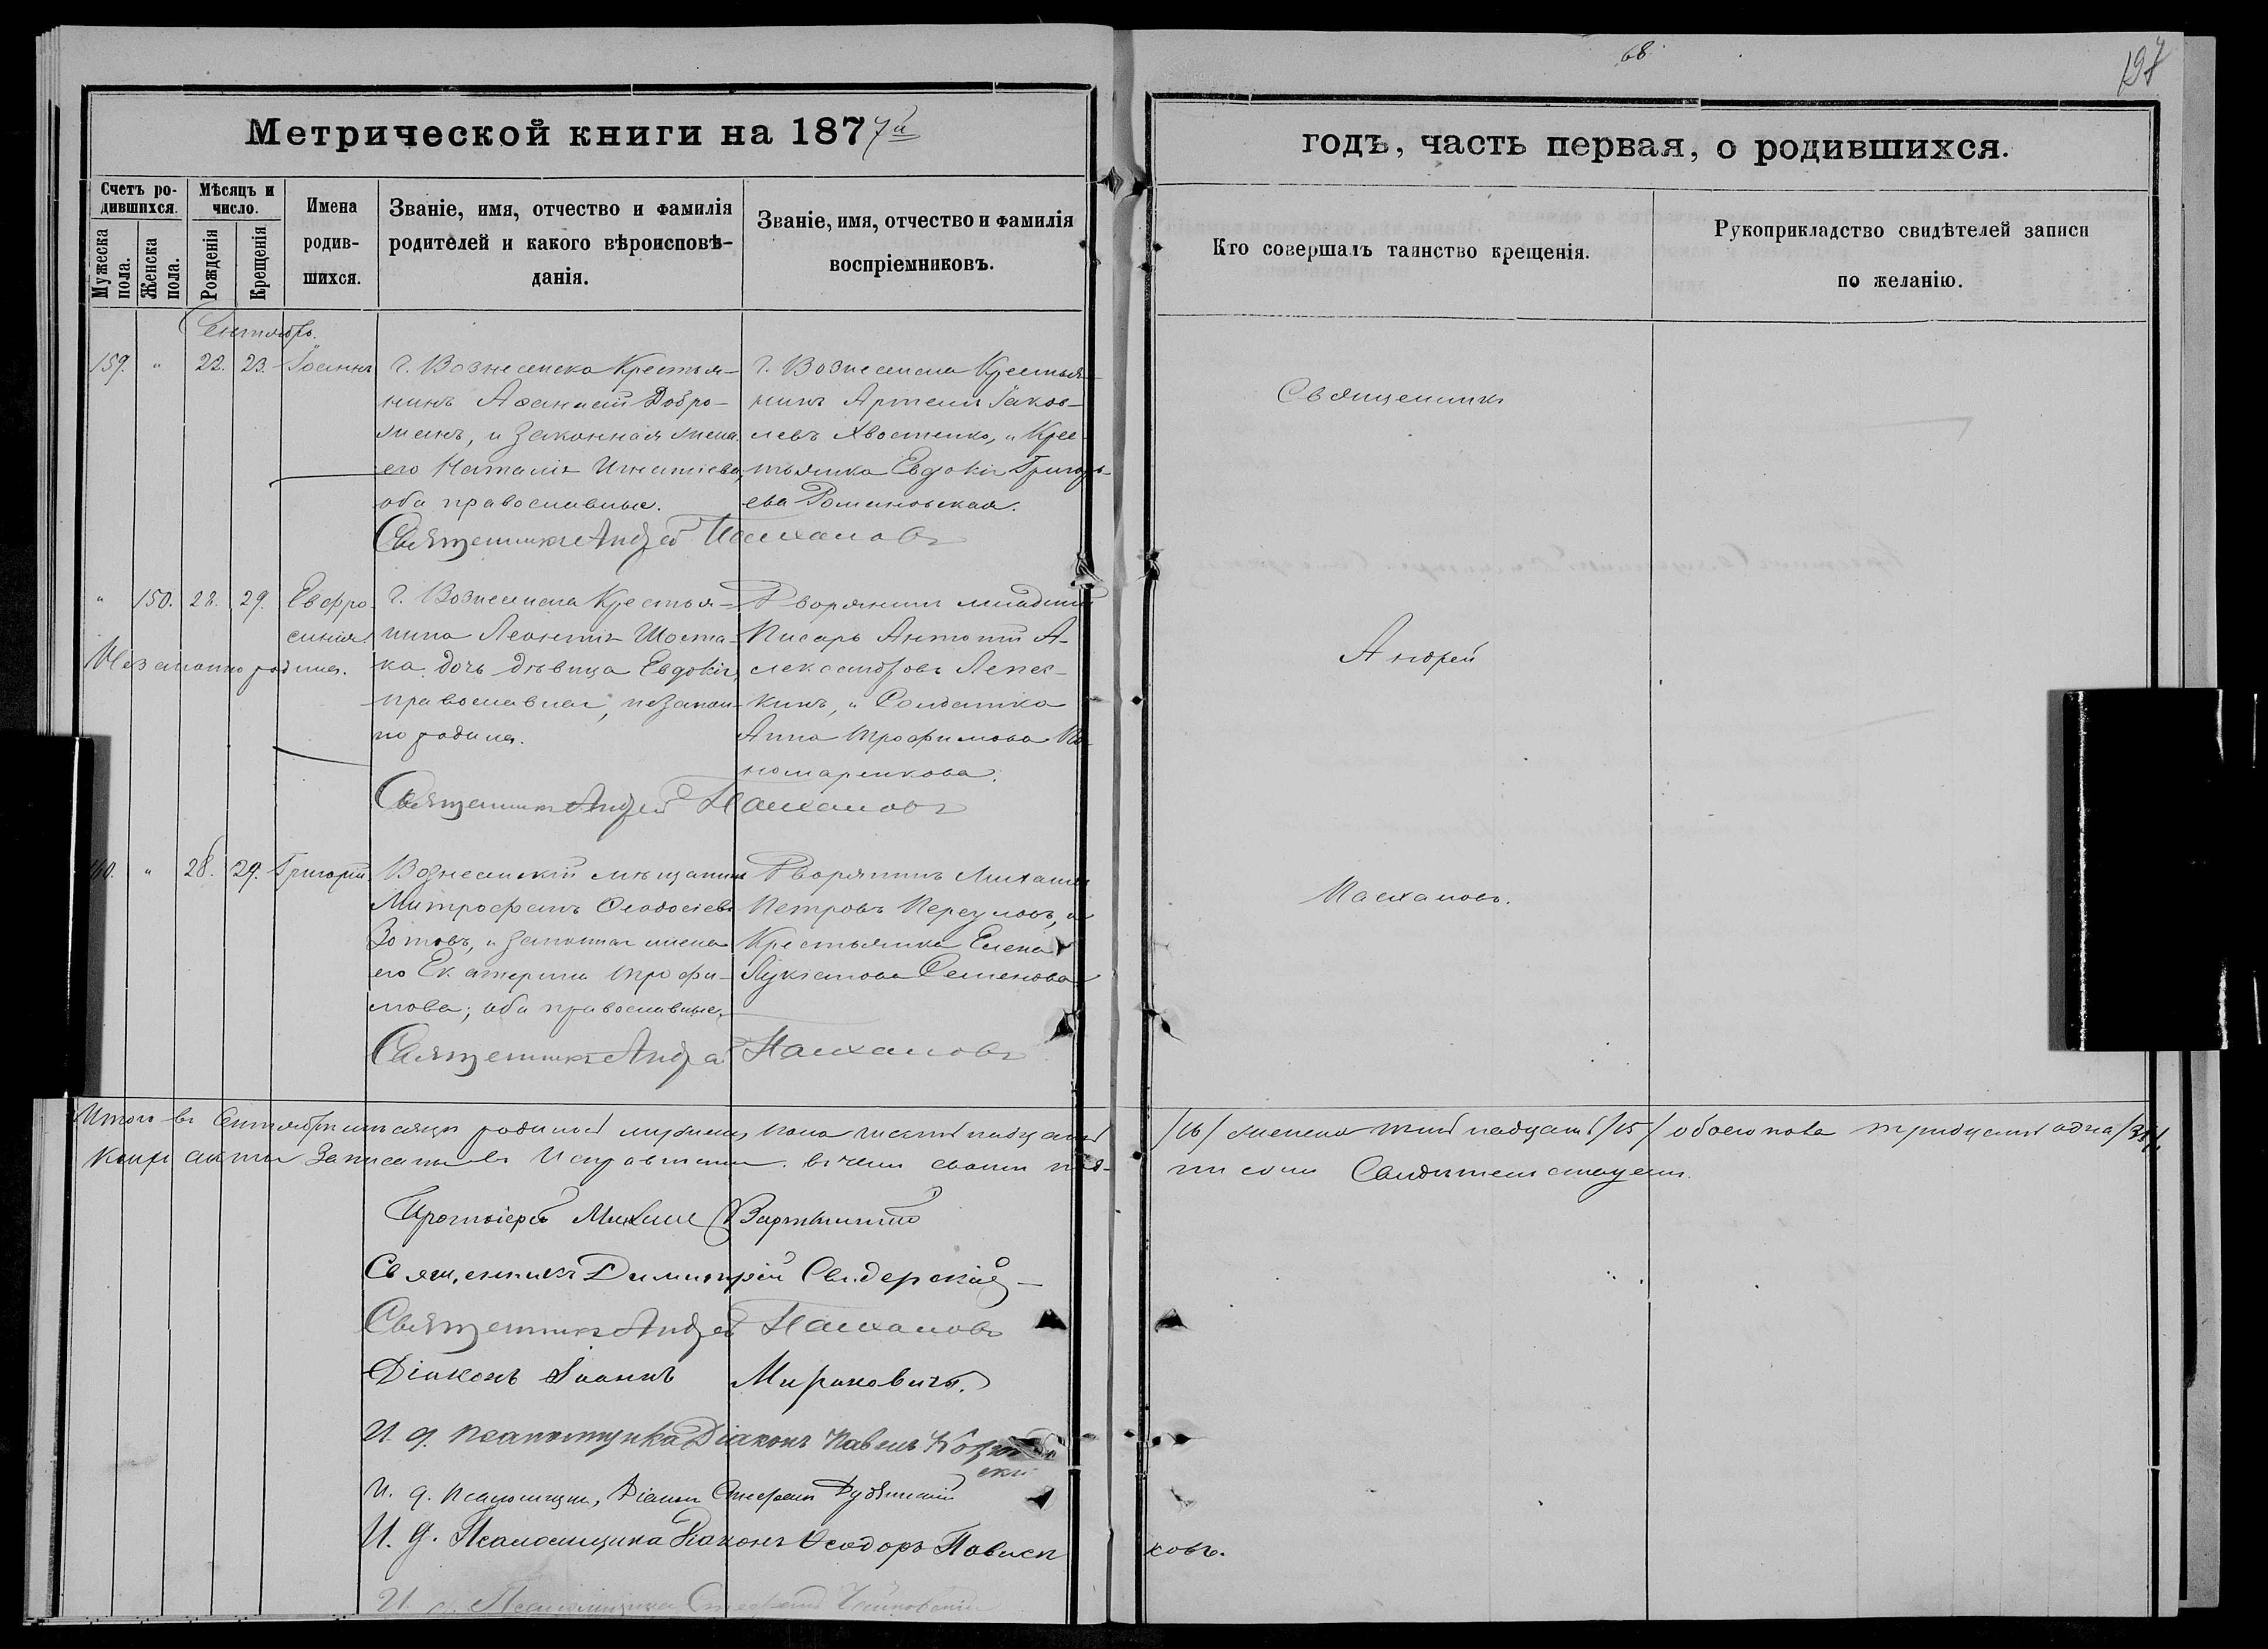 68
197
Метрической книги на 1877й
годъ, часть первая, о родившихся.
Счетъ ро-
дившихся.
Мужеска
пола.
Женска
пола.
Мѣсяцъ и
число.
Рожденія
Крещенія
Имена
родив-
шихся.
Званіе, имя, отчество и фамилія
родителей и какого вѣроисповѣ-
данія.
Званіе, имя, отчество и фамилія
воспріемниковъ.
Кто совершалъ таинство крещенія.
Рукоприкладство свидѣтелей записи
по желанію.
Сентябрь.
159. " 22. 23. Іоаннъ
г. Вознесенска Крестья-
нинъ Аѳанасій Добро-
and, и законная жена
его Наталія Игнатіева,
оба православные.
г. Вознесенска Крестья-
нинъ Артемъ Іаков-
левъ Хвостенко, и Крес-
тьянка Евдокія Григорь-
ева Романовская.
Священникъ Андрей Пасхаловъ
Священникъ
" 150. 28. 29. Евфро-
синія
Незаконнорадная.
г. Вознесенска Крестья-
нина Леонтія Шоста-
ка дочь дѣвица Евдокія,
православная, незакон-
но родила.
Дворянинъ младшій
Писарь Антоній А-
лександровъ Лепех-
кинъ, и Солдатка
Анна Трофимова По-
номаренкова.
Священникъ Андрей Пасхаловъ
Андрей
160. " 28. 29. Григорій
Вознесенскій мѣщанинъ
Митрофанъ Ѳеодосіевъ
Зотовъ, и законная жена
его Екатерина Трофи-
мова; оба православные.
Дворянинъ Михаилъ
Петровъ Перезловъ, и
Крестьянка Елена
Лукіанова Семенова
Священникъ Андрей Пасхаловъ
Пасхаловъ.
Итого въ Сентябрѣ мѣсяцѣ родилось мужеска пола шестнадцать /16/ женска пятнадцать /15/ обоего пола тридцать одна /31/,
Книга акты записаны въ Исправности. въ чемъ своими под- писями Свидѣтельствуемъ.
Протоіерей Михаилъ
Священникъ Димитрій Свидерскій
Священникъ Андрей Пасхаловъ
Діаконъ Іоаннъ Мираковичъ.
И. д. псаломщика Діаконъ Павелъ
скій
И. д. псаломщика, Діаконъ Стефанъ Дубинскій
И. д. Псаломщика Діаконъ Ѳеодоръ Павлен ковъ.
И. д. Псаломщика Стефанъ